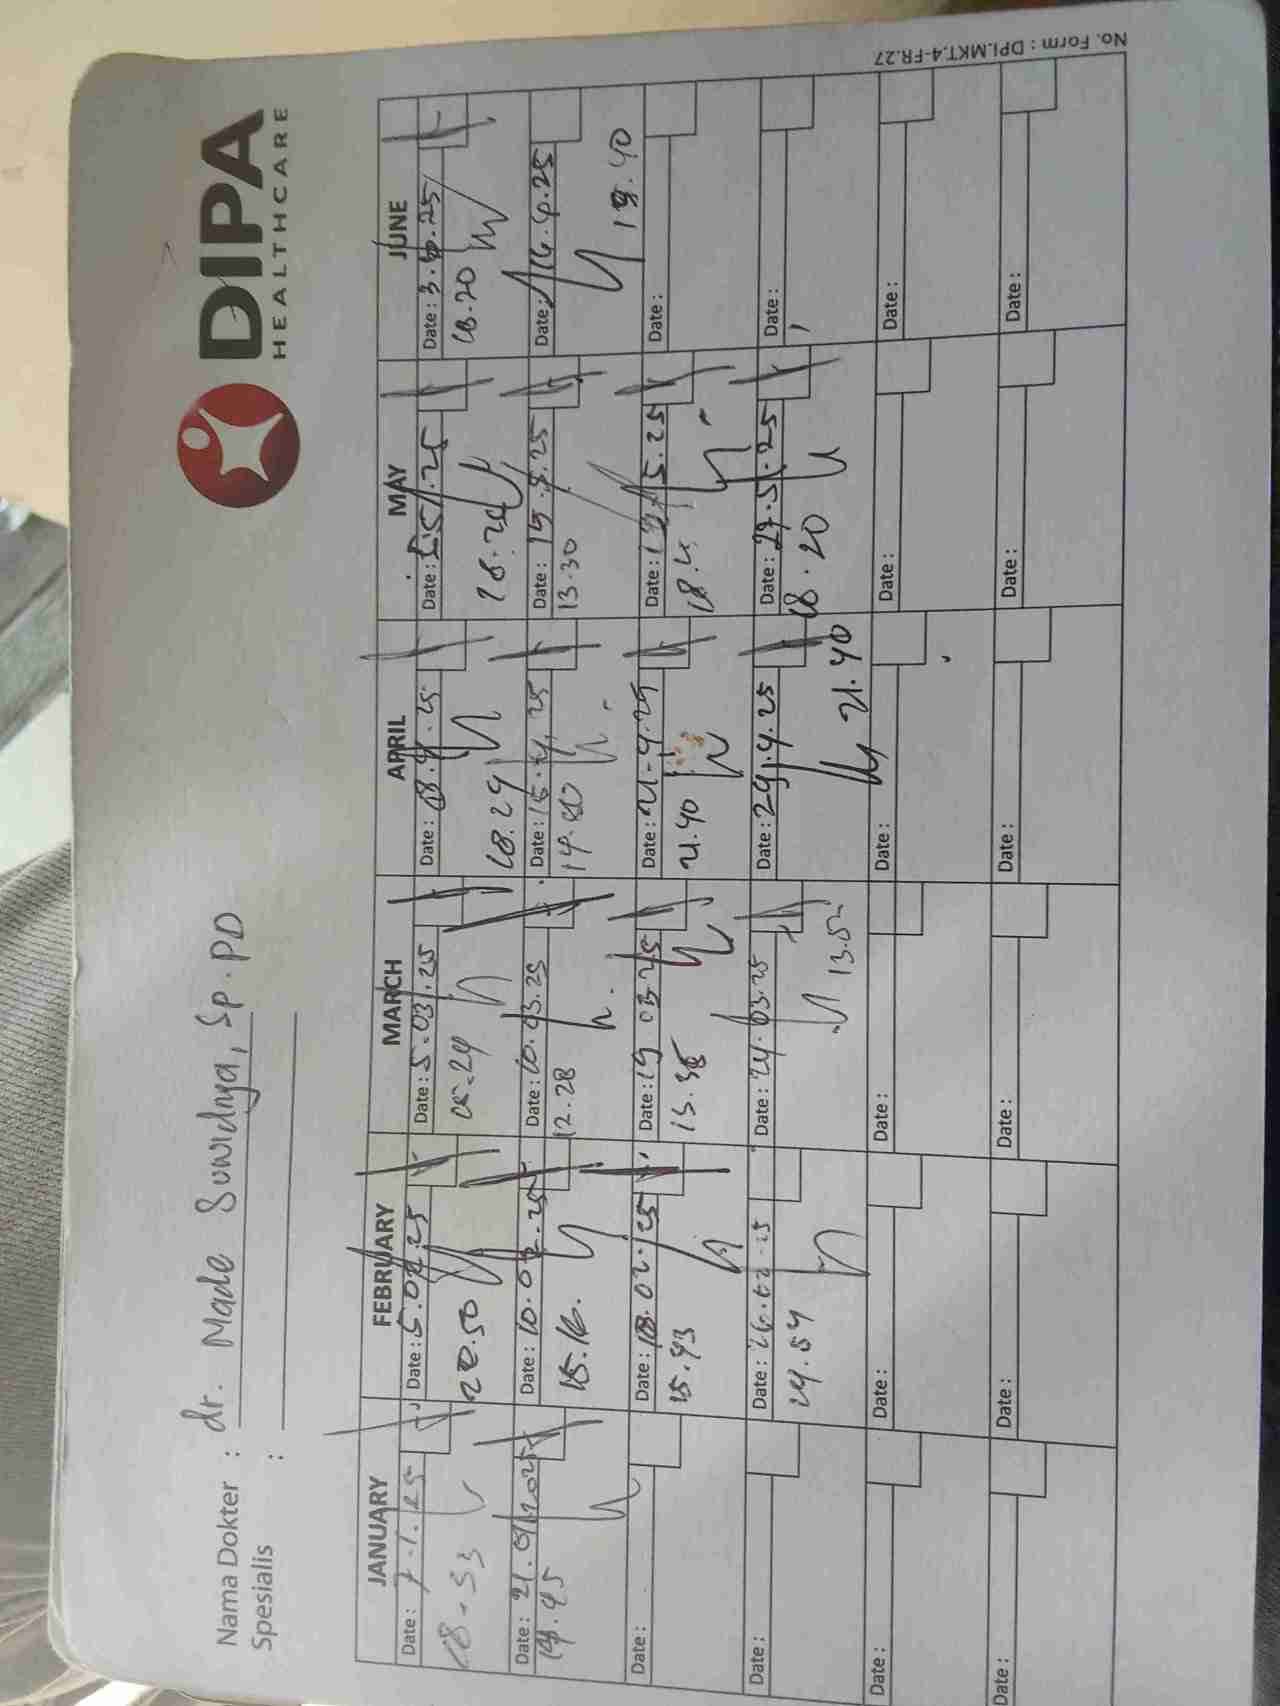 DIPA
HEALTHCARE
Nama Dokter : dr. Made Suwidnya, Sp.PD
Spesialis :
JANUARY FEBRUARY MARCH APRIL MAY JUNE
Date : 7.1.25 Date : 5.02.25 Date : 5.03.25 Date : 08.4.25 Date : 5.5.25 Date : 3.6.25
18.53 20.50 18.29 18.20
Date : 21.01.2025 Date : 10.02.25 Date : 10.03.25 Date : 15.4.25 Date : 15.5.25 Date : 16.6.25
19.45 15.16. 12.28 13.30 19.40
Date : Date : 18.02.25 Date : 19 03.25 Date : 21.4.25 Date : 5.25 Date :
15.43 21.40
Date : Date : 26.02.25 Date : 24.03.25 Date : 29.4.25 Date : 27.5.25 Date :
21.40 18.20
Date : Date : Date : Date : Date : Date :
Date : Date : Date : Date : Date : Date :
No. Form : DPI.MKT.4-FR.27